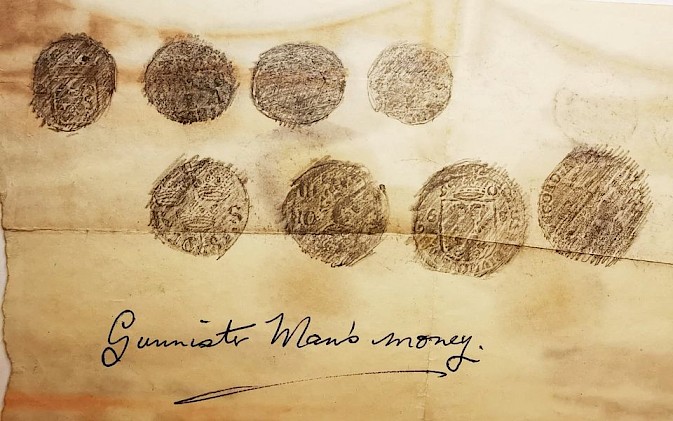 Gunnister Man's money.